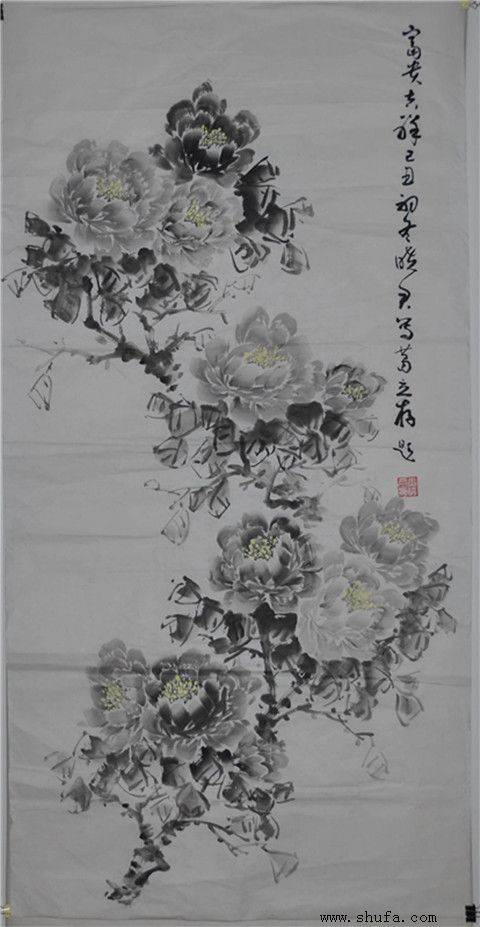 富贵吉祥己丑初冬晓君写黄立存题
www.shufa.com